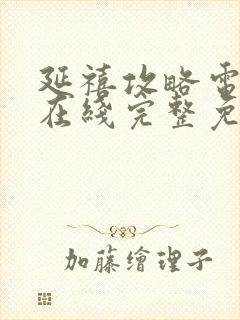 延禧攻略電
在綫完整免
加藤繪理子